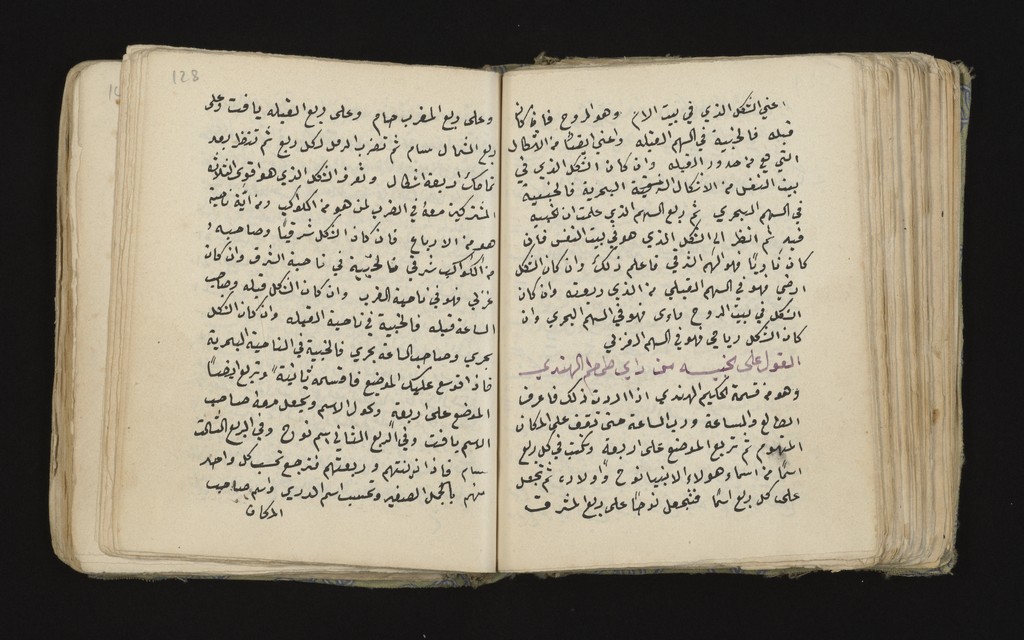 اعني الشكل الذي في بيت الام وهو المروح فاذا كان
قبله فالخبية في السهم القبله واعني ايضا من الاشكال
التي هي من حدود القبله وان كان الشكل الذي في
بيت النفس من الاشكال البحرية فالخبية
في السهم البحري ثم ربع السهم الذي علمت ان الخبيه
فيه ثم انظر الى الشكل الذي هو في بيت النفس فان
كان ناريا فهو السهم الشرقي فاعلم ذلك وان كان الشكل
ارضي فهو في السهم القبلي من الذي ربعته وان كان
الشكل في بيت المروح ماوى فهو في السهم البحري وان
كان الشكل رياحي فهو في السهم الغربي
القول على الخبيه من راي طمطم الهندي
وهو من قسمة الحكيم الهندي اذا اردت ذلك فاعرف
الطالع والساعة ورب الساعة حتى تقف على المكان
المتهوم ثم تربع الموضع على اربعة وتكتب في كل ربع
اسما من اسماء هولاء الانبيا نوح واولاده ثم تجعل
على كل ربع اسما فتجعل نوحا على ربع المشرق
128
وعلى ربع المغرب حام وعلى ربع القبله يافت وعلى
ربع الشمال سام ثم تضرب الرمل لكل ربع ثم تنظر بعد
تمامك اربعة اشكال وتعرف الشكل الذي هو اقوى الثلاثة
المشتركين معه في الضرب لمن هو من الكواكب ومن اية ناحية
هو من الارباع فان كان الشكل شرقيا وصاحبه
من الكواكب شرقي فالخبية في ناحية الشرق وان كان
غربي فهو في ناحية الغرب وان كان الشكل قبله وصاحب
الساعة قبله فالخبية في ناحية القبله وان كان الشكل
بحري وصاحب الساعة بحري فالخبية في الناحية البحرية
فاذا توسع عليك الموضع فاقسمه ثانية وتربع ايضا
الموضع على اربعة وتحول الاسم وتجعل معه صاحب
الاسم يافت وفي الربع الثاني اسم نوح وفي الربع الثالث
سام فاذا نزلتهم وربعتهم فترجع تحسب كل واحد
منهم بالجمل الصغير وتحسب اسم الدري واسم صاحب
المكان